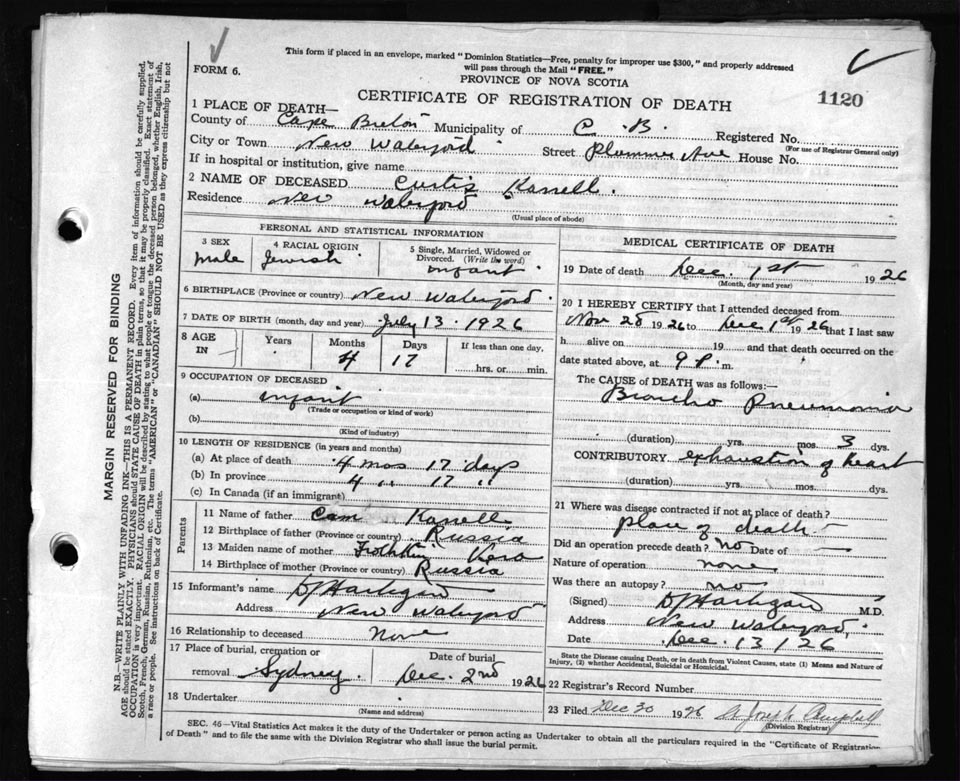 This form if placed in an envelope, marked "Dominion Statistics—Free, penalty for improper use $300," and properly addressed
will pass through the Mail "FREE."
FORM 6.
PROVINCE OF NOVA SCOTIA
CERTIFICATE OF REGISTRATION OF DEATH
1120
1 PLACE OF DEATH—
County of Cape Breton Municipality of C. B. Registered No.
(For use of Registrar General only)
City or Town New Waterford Street Plummer Ave House No.
If in hospital or institution, give name
2 NAME OF DECEASED Curtis Kanell.
Residence New Waterford
(Usual place of abode)
PERSONAL AND STATISTICAL INFORMATION
3 SEX 4 RACIAL ORIGIN 5 Single, Married, Widowed or
Divorced. (Write the word)
male Jewish infant
6 BIRTHPLACE (Province or country) New Waterford.
7 DATE OF BIRTH (month, day and year) July 13. 1926
8 AGE IN Years Months Days If less than one day,
4 17 hrs. or min.
9 OCCUPATION OF DECEASED
(a) infant
(Trade or occupation or kind of work)
(b)
(Kind of industry)
10 LENGTH OF RESIDENCE (in years and months)
(a) At place of death 4 mos 17 days
(b) In province 4 " 17 "
(c) In Canada (if an immigrant)
Parents
11 Name of father Cam Kanell
12 Birthplace of father (Province or country) Russia
13 Maiden name of mother Vera
14 Birthplace of mother (Province or country) Russia
15 Informant's name D J Hartigan
Address New Waterford
16 Relationship to deceased None
17 Place of burial, cremation or Date of burial
removal Sydney. Dec. 2nd 1926
18 Undertaker
(Name and address)
MEDICAL CERTIFICATE OF DEATH
19 Date of death Dec. 1st 1926
(Month, day and year)
20 I HEREBY CERTIFY that I attended deceased from
Nov 28 1926 to Dec 1st 1926 that I last saw
h alive on 19 and that death occurred on the
date stated above, at 9 P. m.
The CAUSE of DEATH was as follows:—
Broncho Pneumonia
(duration) yrs. mos. 3 dys.
CONTRIBUTORY exhaustion of heart
(duration) yrs. mos. dys.
21 Where was disease contracted if not at place of death?
place of death
Did an operation precede death? no Date of —
Nature of operation none
Was there an autopsy? no
(Signed) D J Hartigan M.D.
Address New Waterford.
Date Dec. 13/26
State the Disease causing Death, or in death from Violent Causes, state (1) Means and Nature of
Injury, (2) whether Accidental, Suicidal or Homicidal.
22 Registrar's Record Number
23 Filed Dec 30 1926 Joseph Campbell
(Division Registrar)
SEC. 46—Vital Statistics Act makes it the duty of the Undertaker or person acting as Undertaker to obtain all the particulars required in the "Certificate of Registration
of Death" and to file the same with the Division Registrar who shall issue the burial permit.
MARGIN RESERVED FOR BINDING
N.B.—WRITE PLAINLY WITH UNFADING INK—THIS IS A PERMANENT RECORD. Every item of information should be carefully supplied.
AGE should be stated EXACTLY. PHYSICIANS should STATE CAUSE OF DEATH in plain terms, so that it may be properly classified. Exact statement of
OCCUPATION is very important. RACIAL ORIGIN will be described by stating to what people or tongue the deceased person belonged, whether English, Irish,
Scotch, French, German, Russian, Ruthenian, etc. The terms "AMERICAN" or "CANADIAN" SHOULD NOT BE USED as they express citizenship but not
a race or people. See instructions on back of Certificate.